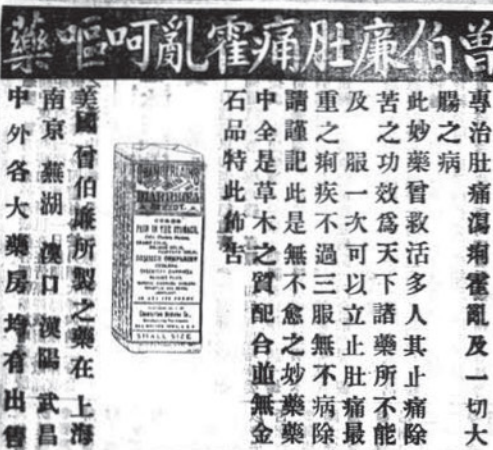 曾伯廉肚痛霍亂呵嘔藥
專治肚痛瀉痢霍亂及一切大
腸之病
此妙藥曾救活多人其止痛除
苦之功效爲天下諸藥所不能
及 服一次可以立止肚痛最
重之痢疾不過三服無不病除
請謹記此是無不愈之妙藥藥
中全是草木之質配合並無金
石品特此佈告
CHAMBERLAIN'S
PAIN IN THE STOMACH,
SMALL SIZE
美國曾伯廉所製之藥在 上海
南京 蕪湖 漢口 漢陽 武昌
中外各大藥房 均有出售